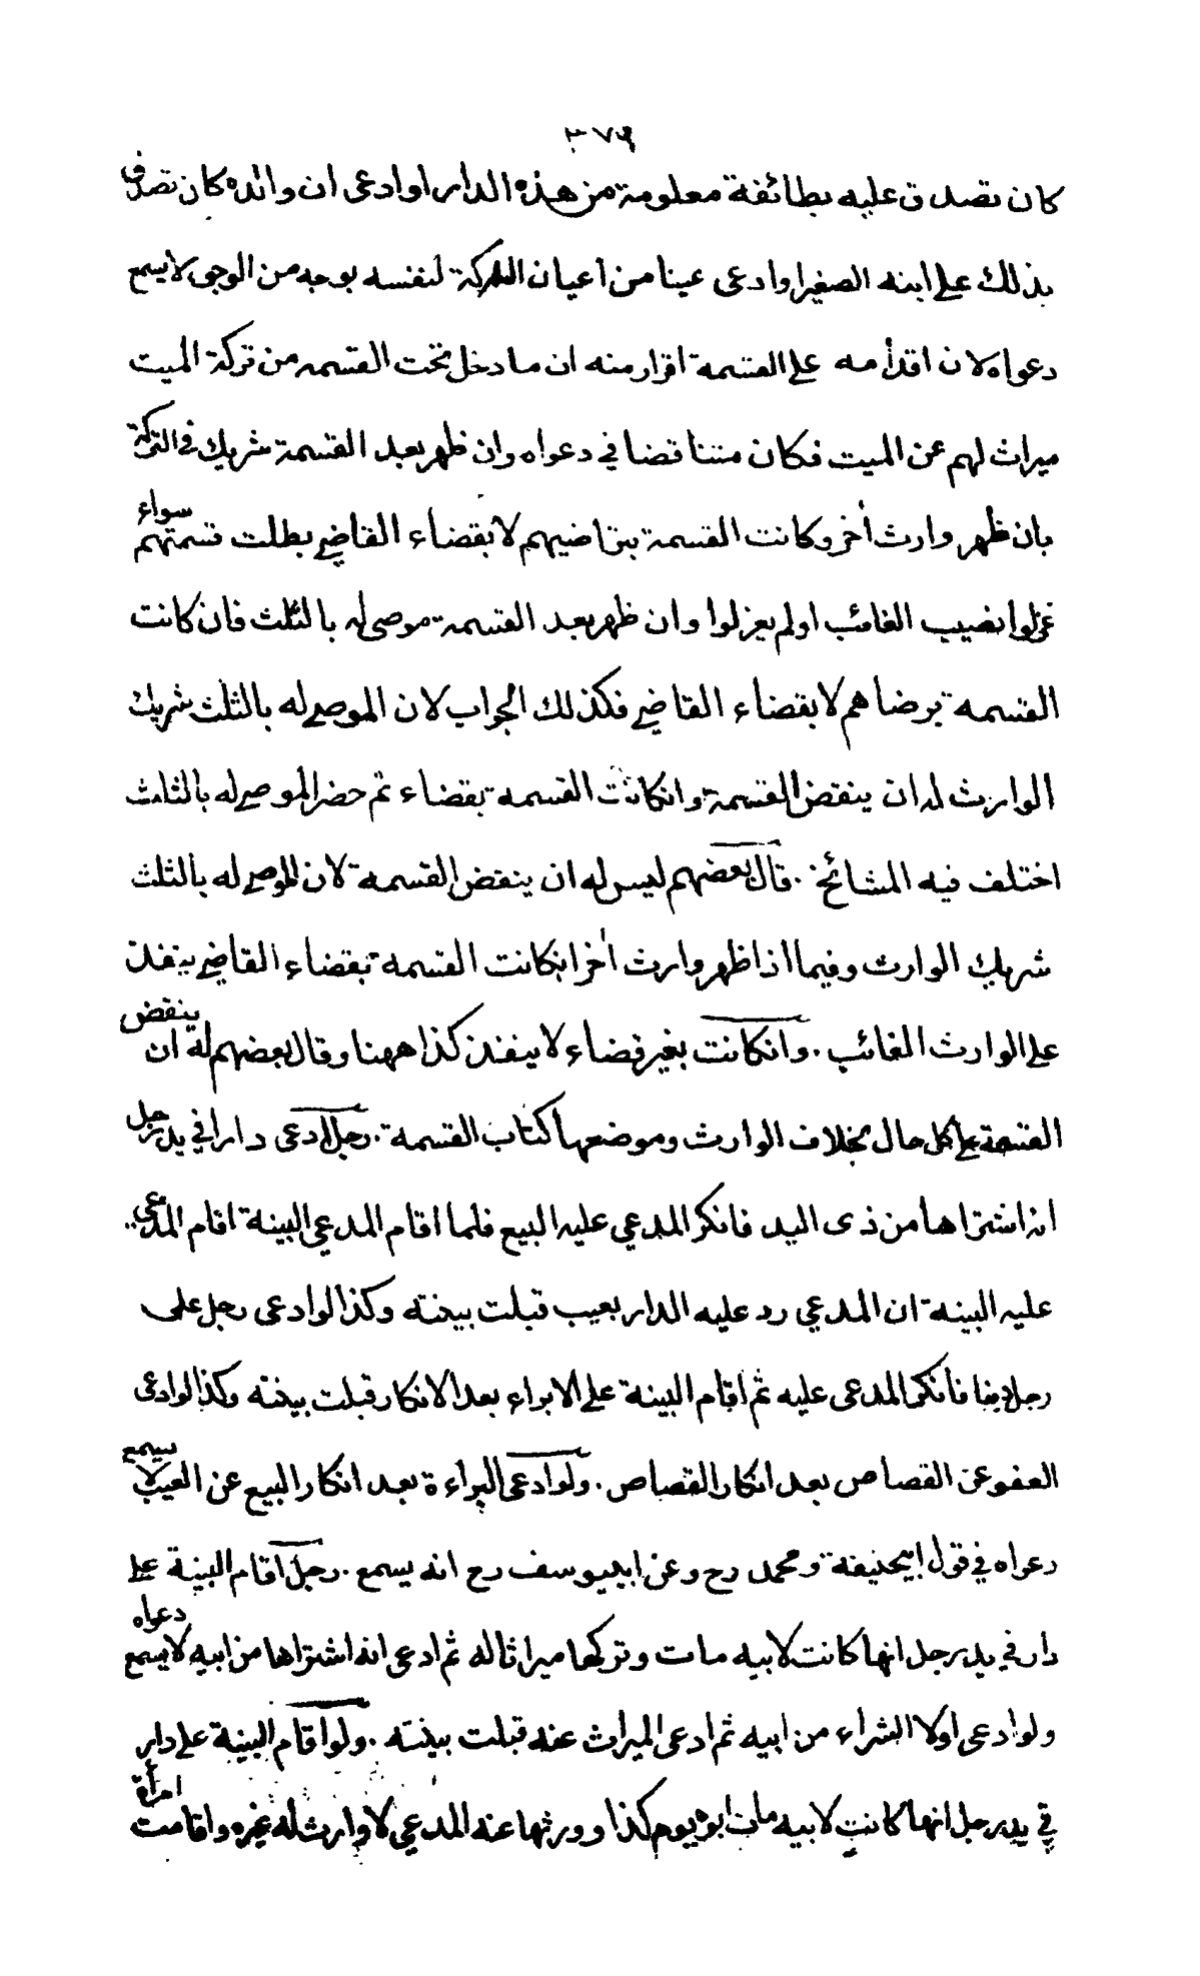 ٣٧٩
كان تصدق عليه بطائفة معلومة من هذه الدار او ادعى ان والده كان تصدق
بذلك على ابنه الصغير او ادعى عينا من اعيان التركة لنفسه بوجه من الوجوه لا يسمع
دعواه لان اقدامه على القسمة اقرار منه ان ما دخل تحت القسمه من تركة الميت
ميراث لهم عن الميت فكان متناقضا في دعواه وان ظهر بعد القسمة شريك في التركة
بان ظهر وارث أخر وكانت القسمة بتراضيهم لا بقضاء القاضي بطلت قسمتهم سواء
عزلوا نصيب الغائب او لم يعزلوا وان ظهر بعد القسمة موصى له بالثلث فان كانت
القسمة برضاهم لا بقضاء القاضي فكذلك الجواب لان الموصى له بالثلث شريك
الوارث له ان ينقض القسمة وانكانت القسمة بقضاء ثم حضر الموصى له بالثلث
اختلف فيه المشائخ . قال بعضهم ليس له ان ينقض القسمة لان الموصى له بالثلث
شريك الوارث وفيما اذا ظهر وارث أخر انكانت القسمة بقضاء القاضي ينفذ
على الوارث الغائب . وانكانت بغير قضاء لا ينفذ كذا ههنا وقال بعضهم له ان ينقض
القسمة على كل حال بخلاف الوارث وموضعها كتاب القسمة . رجل ادعى دارا في يد رجل
انه اشتراها من ذى اليد فانكر المدعي عليه البيع فلما اقام المدعي البينة اقام المدعى
عليه البينة ان المدعي رد عليه الدار بعيب قبلت بينته وكذا لو ادعى رجل على
رجل دينا فانكر المدعى عليه ثم اقام البينة على الابراء بعد الانكار قبلت بينته وكذا لو ادعى
العفو عن القصاص بعد انكار القصاص . ولو ادعى البراءة بعد انكار البيع عن العيب لا يسمع
دعواه في قول ابيحنيفة ومحمد رح وعن ابييوسف رح انه يسمع . رجل اقام البينة على
دار في يد رجل انها كانت لابيه مات وتركها ميراثا له ثم ادعى انه اشتراها من ابيه لا يسمع دعواه
ولو ادعى اولا الشراء من ابيه ثم ادعى الميراث عنه قبلت بينته . ولو اقام البينة على دار
في يد رجل انها كانت لابيه مات ابوه يوم كذا وورثها عنه المدعي لا وارث له غيره واقامت امرأة